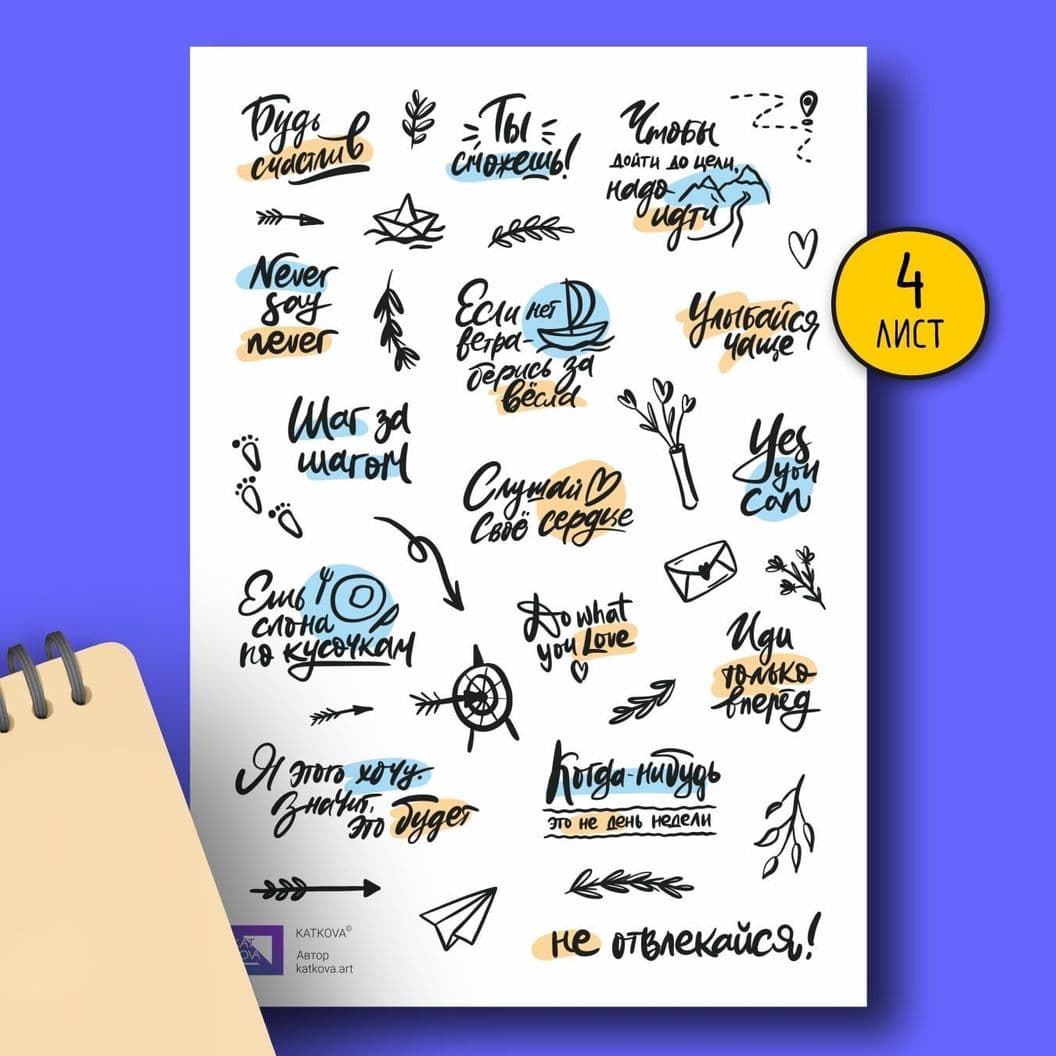 Будь
счастлив
Ты
сможешь!
Чтобы
дойти до цели,
надо
идти
Never
say
never
Если нет
ветра-
берись за
вёсла
Улыбайся
чаще
4
ЛИСТ
Шаг за
шагом
Слушай
своё сердце
Yes
you
can
Ешь
слона
по кусочкам
Do what
you Love
Иди
только
вперёд
Я этого хочу.
Значит,
это будет
Когда-нибудь
это не день недели
KATKOVA©
Автор
katkova.art
не отвлекайся!